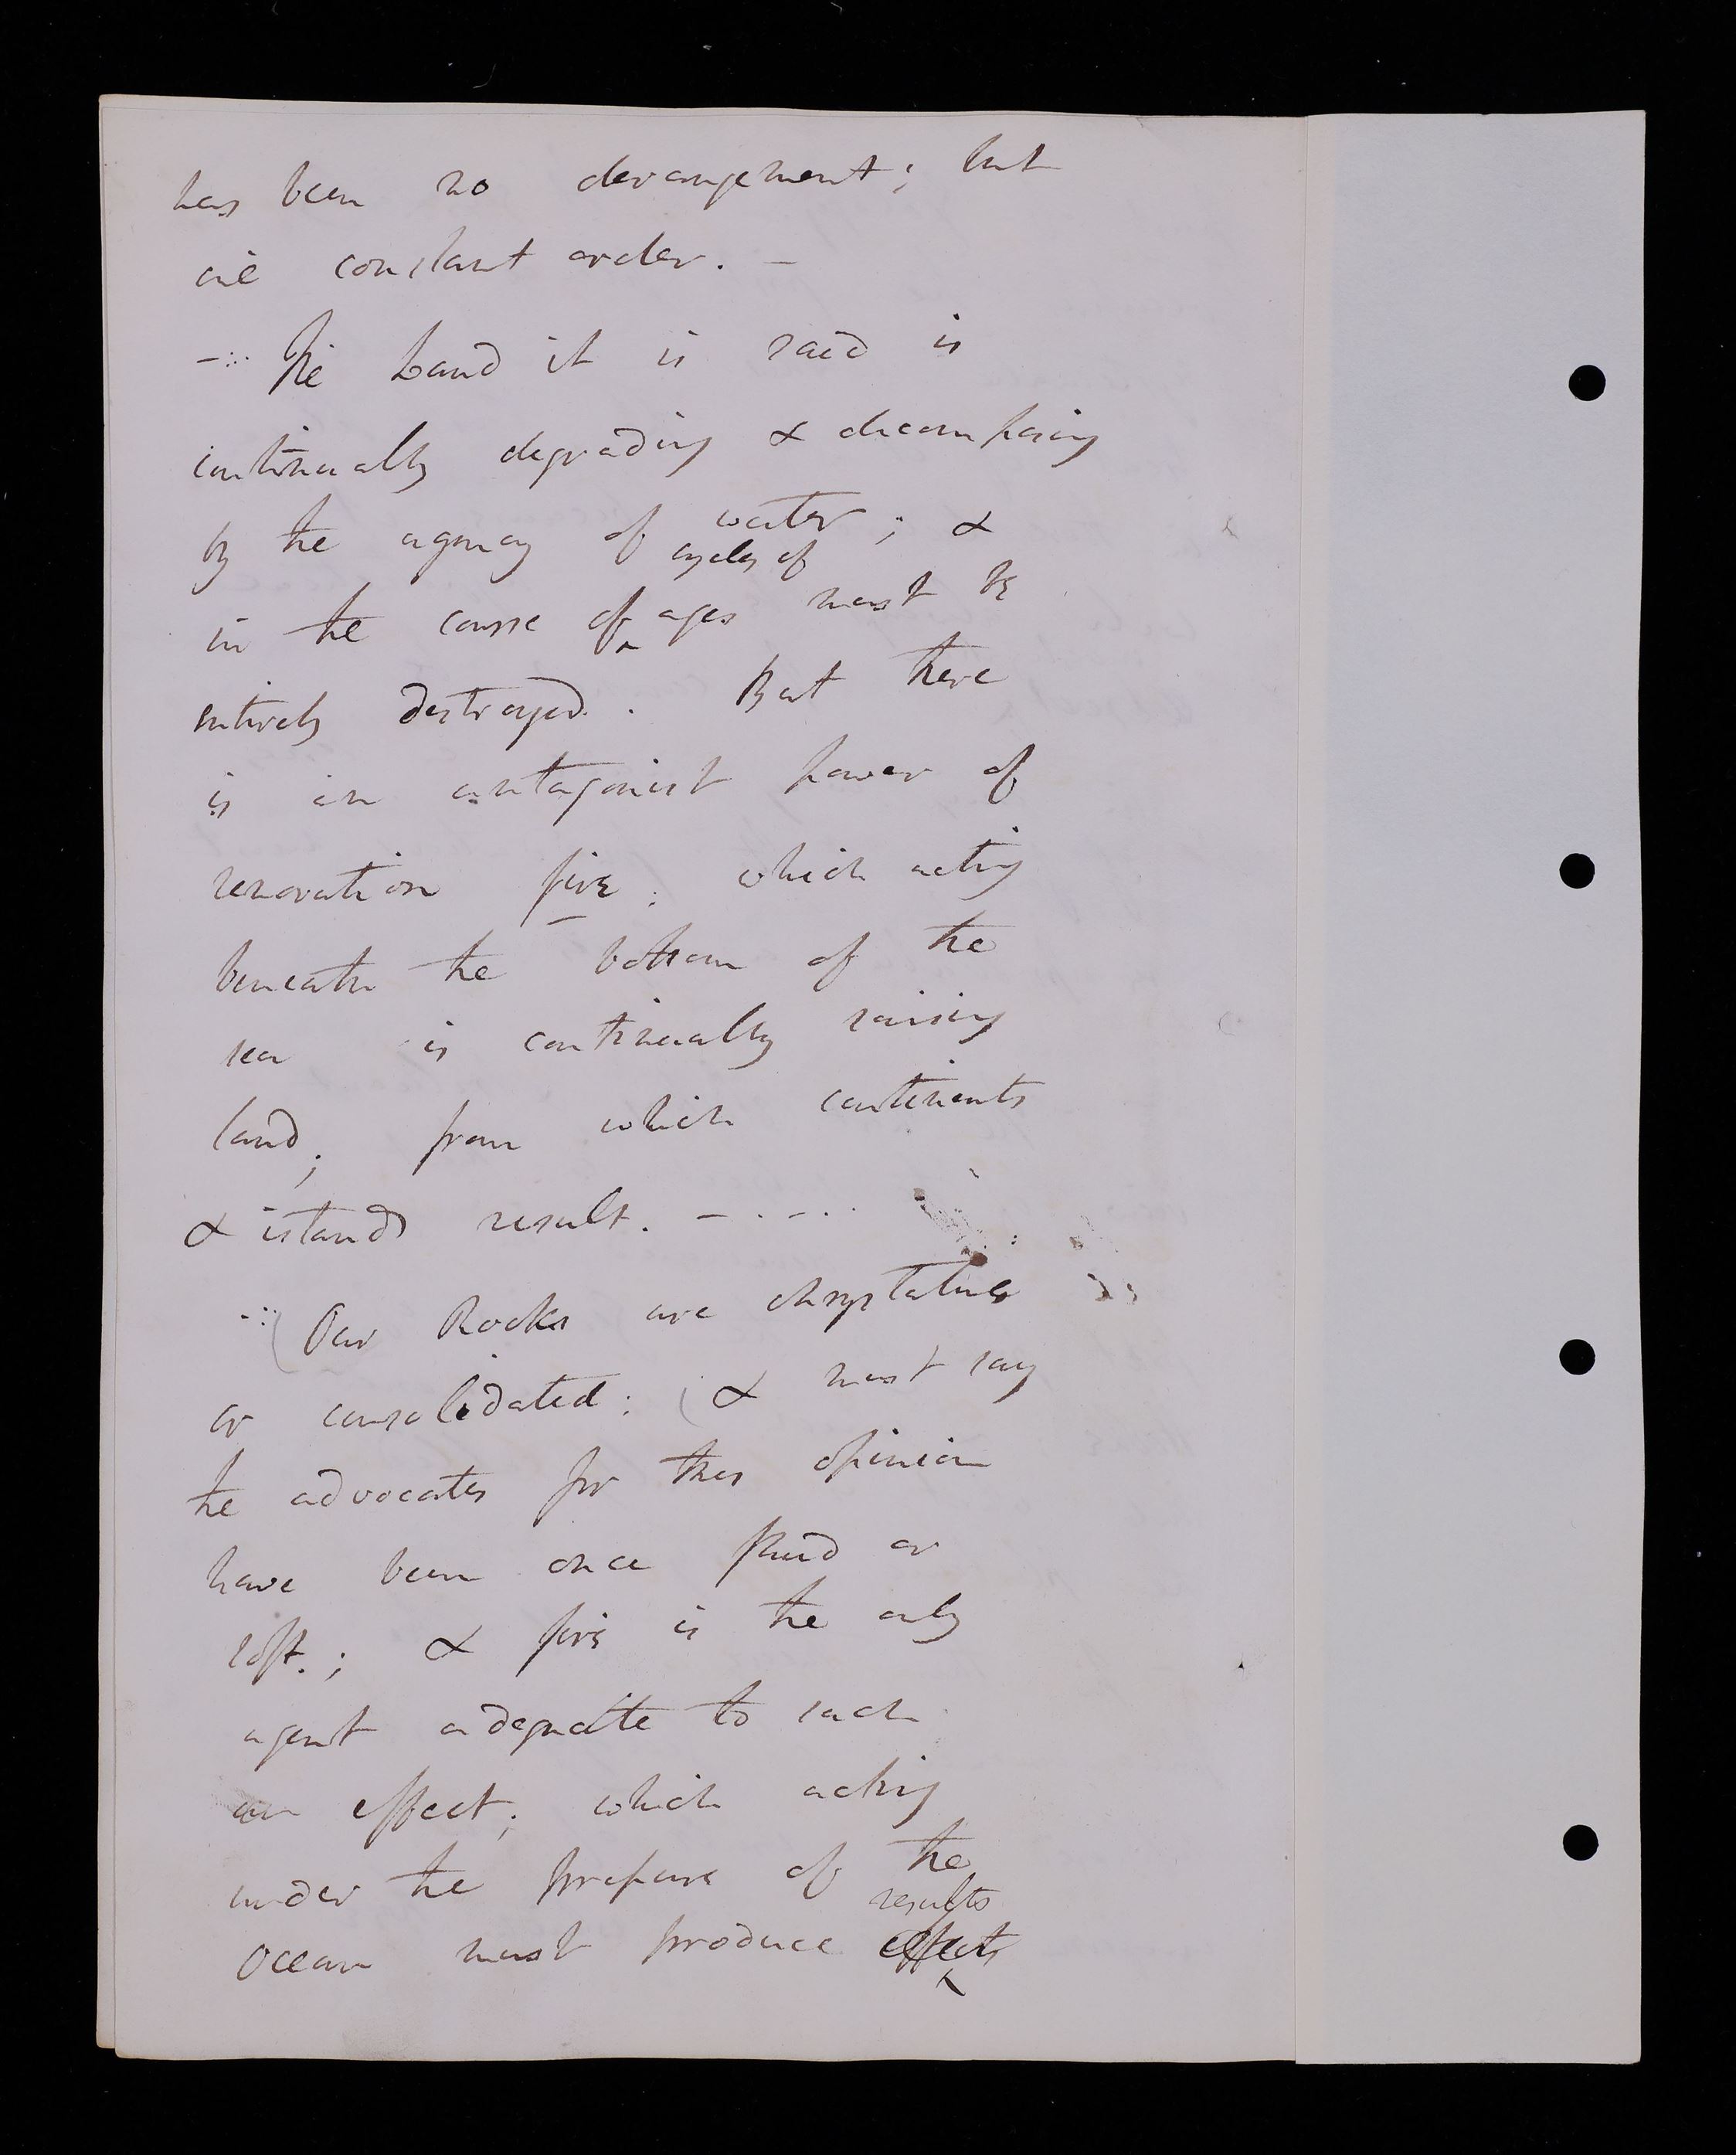 has been no derangement; but
all constant order. –
–:· The Land it is said is
continually degrading & decomposing
by the agency of water; &
cycles of
in the course of ^ ages must be
entirely destroyed. But there
is an antagonist power of
renovation fire; which acting
beneath the bottom of the
sea is continually raising
land; from which continents
& islands result. – · – · ·
–:· (Our Rocks are chrystaline
or consolidated: (& must say
the advocates for this opinion
have been once fluid or
soft.; & fire is the only
agent adequate to such
an effect; which acting
under the pressure of the
results
Ocean must produce effects